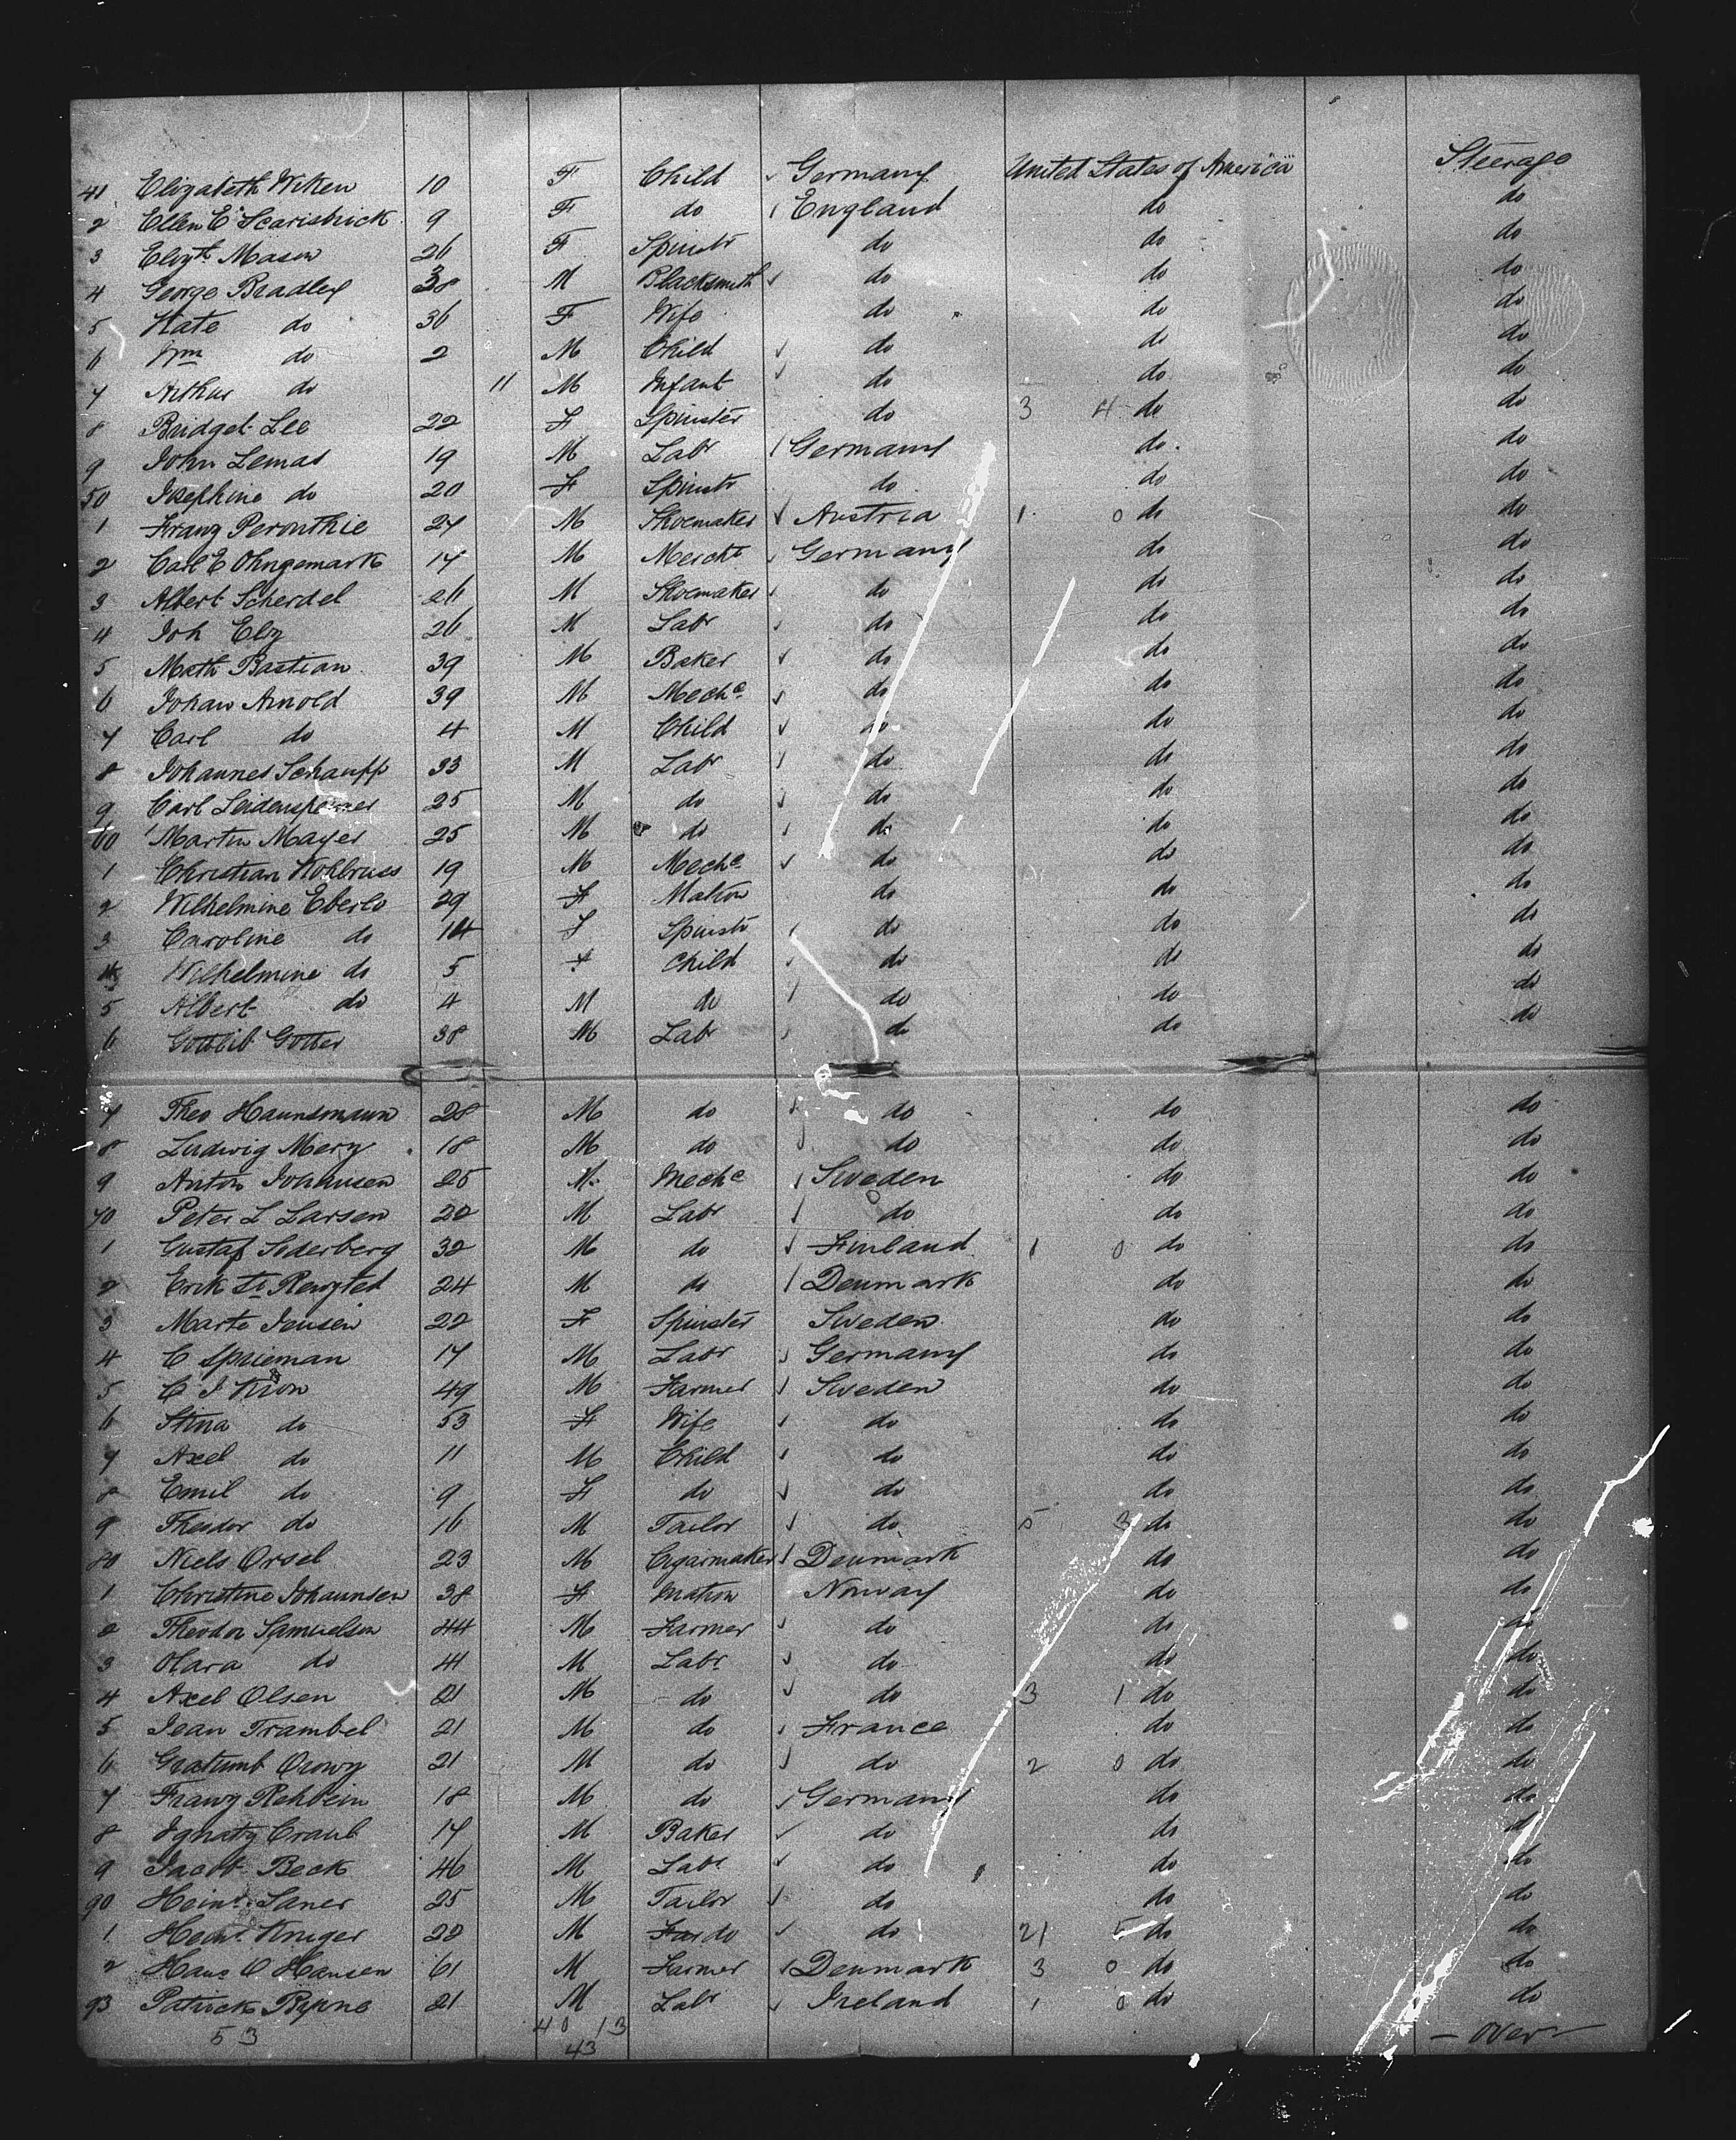 41 Elizabeth Wiken 10 F Child Germany United States of America Steerage
2 Ellen E Scarisbrick 9 F do England do do
3 Elizth Mason 26 F Spinstr do do do
4 George Bradley 38 M Blacksmith do do do
5 Kate do 36 F Wife do do do
6 Wm do 2 M Child do do do
7 Arthur do 11 M Infant do do do
8 Bridget Lee 22 F Spinster do 3 4 do do
9 John Lemas 19 M Labr Germany do do
50 Josephine do 20 F Spinstr do do do
1 Franz Peronthie 27 M Shoemaker Austria 1 0 do do
2 Carl E Ohngemark 17 M Mercht Germany do do
3 Albert Scherdel 26 M Shoemaker do do do
4 Joh Elz 26 M Labr do do do
5 Math Bastian 39 M Baker do do do
6 Johan Arnold 39 M Mechc do do do
7 Carl do 4 M Child do do do
8 Johannes Schaupp 33 M Labr do do do
9 Carl 25 M do do do do
60 Martin Mayer 25 M do do do do
1 Christian Kohlbruss 19 M Mechc do do do
2 Wilhelmine Eberle 29 F Matron do do do
3 Caroline do 14 F Spinstr do do do
4 Wilhelmine do 5 F Child do do do
5 Albert do 4 M do do do do
6 Gottlib Gotter 38 M Labr do do do
7 Theo Haunsmann 28 M do do do do
8 Ludwig Merz 18 M do do do do
9 Anton Johansen 25 M Mechc Sweden do do
70 Peter L Larsen 22 M Labr do do do
1 Gustaf Soderberg 32 M do Finland 1 0 do do
2 Erik 24 M do Denmark do do
3 Marte Jensen 22 F Spinster Sweden do do
4 C Sprieman 17 M Labr Germany do do
5 C J Kron 49 M Farmer Sweden do do
6 Stina do 53 F Wife do do do
7 Axel do 11 M Child do do do
8 Emil do 9 F do do do do
9 Theodor do 16 M Tailor do 5 3 do do
80 Niels Orsel 23 M Cigarmaker Denmark do do
1 Christine Johannsen 38 F Matron Norway do do
2 Theodor Samuelson 44 M Farmer do do do
3 Olara do 41 M Labr do do do
4 Axel Olsen 21 M do do 3 1 do do
5 Jean Trambel 21 M do France do do
6 21 M do do 2 0 do do
7 Franz Rehbein 18 M do Germany do do
8 Ignatz Craub 17 M Baker do do do
9 Jacob Beck 46 M Labr do do do
90 Heinr. Laner 25 M Tailor do do do
1 Heinr. Kruger 22 M Far do do 21 5 do do
2 Hans O Hansen 61 M Farmer Denmark 3 0 do do
93 Patrick Byrne 21 M Labr Ireland 1 0 do do
53 40 13 – over –
43